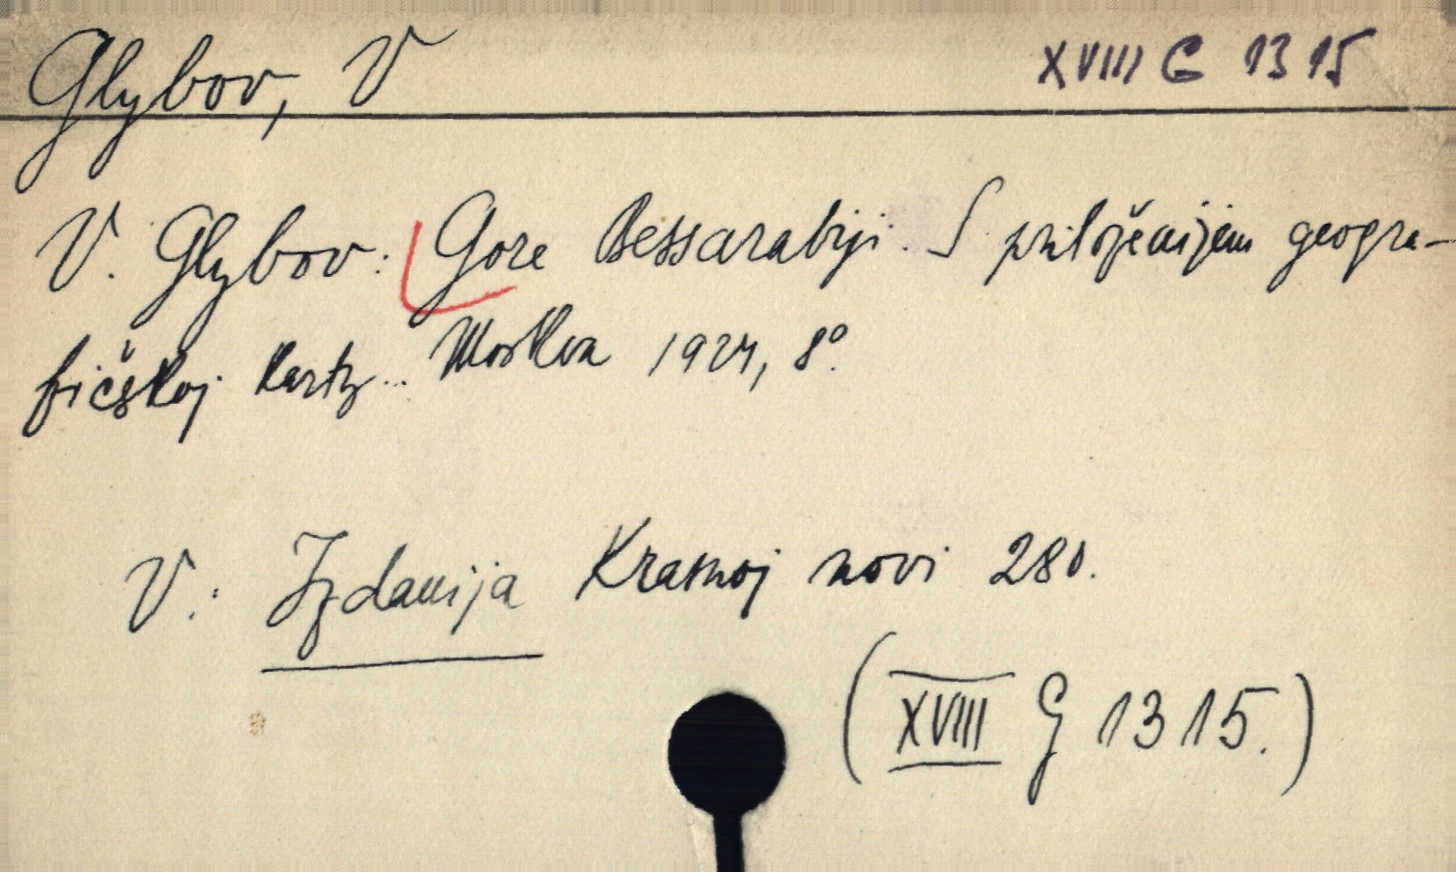 Glybov, V XVIII G 1315
V. Glybov: Gore Bessarabiji. S priloženijem geogra-
fičeskoj karty.. Moskva 1924, 8°.
V.: Izdanija Krasnoj novi 280.
(XVIII G 1315.)